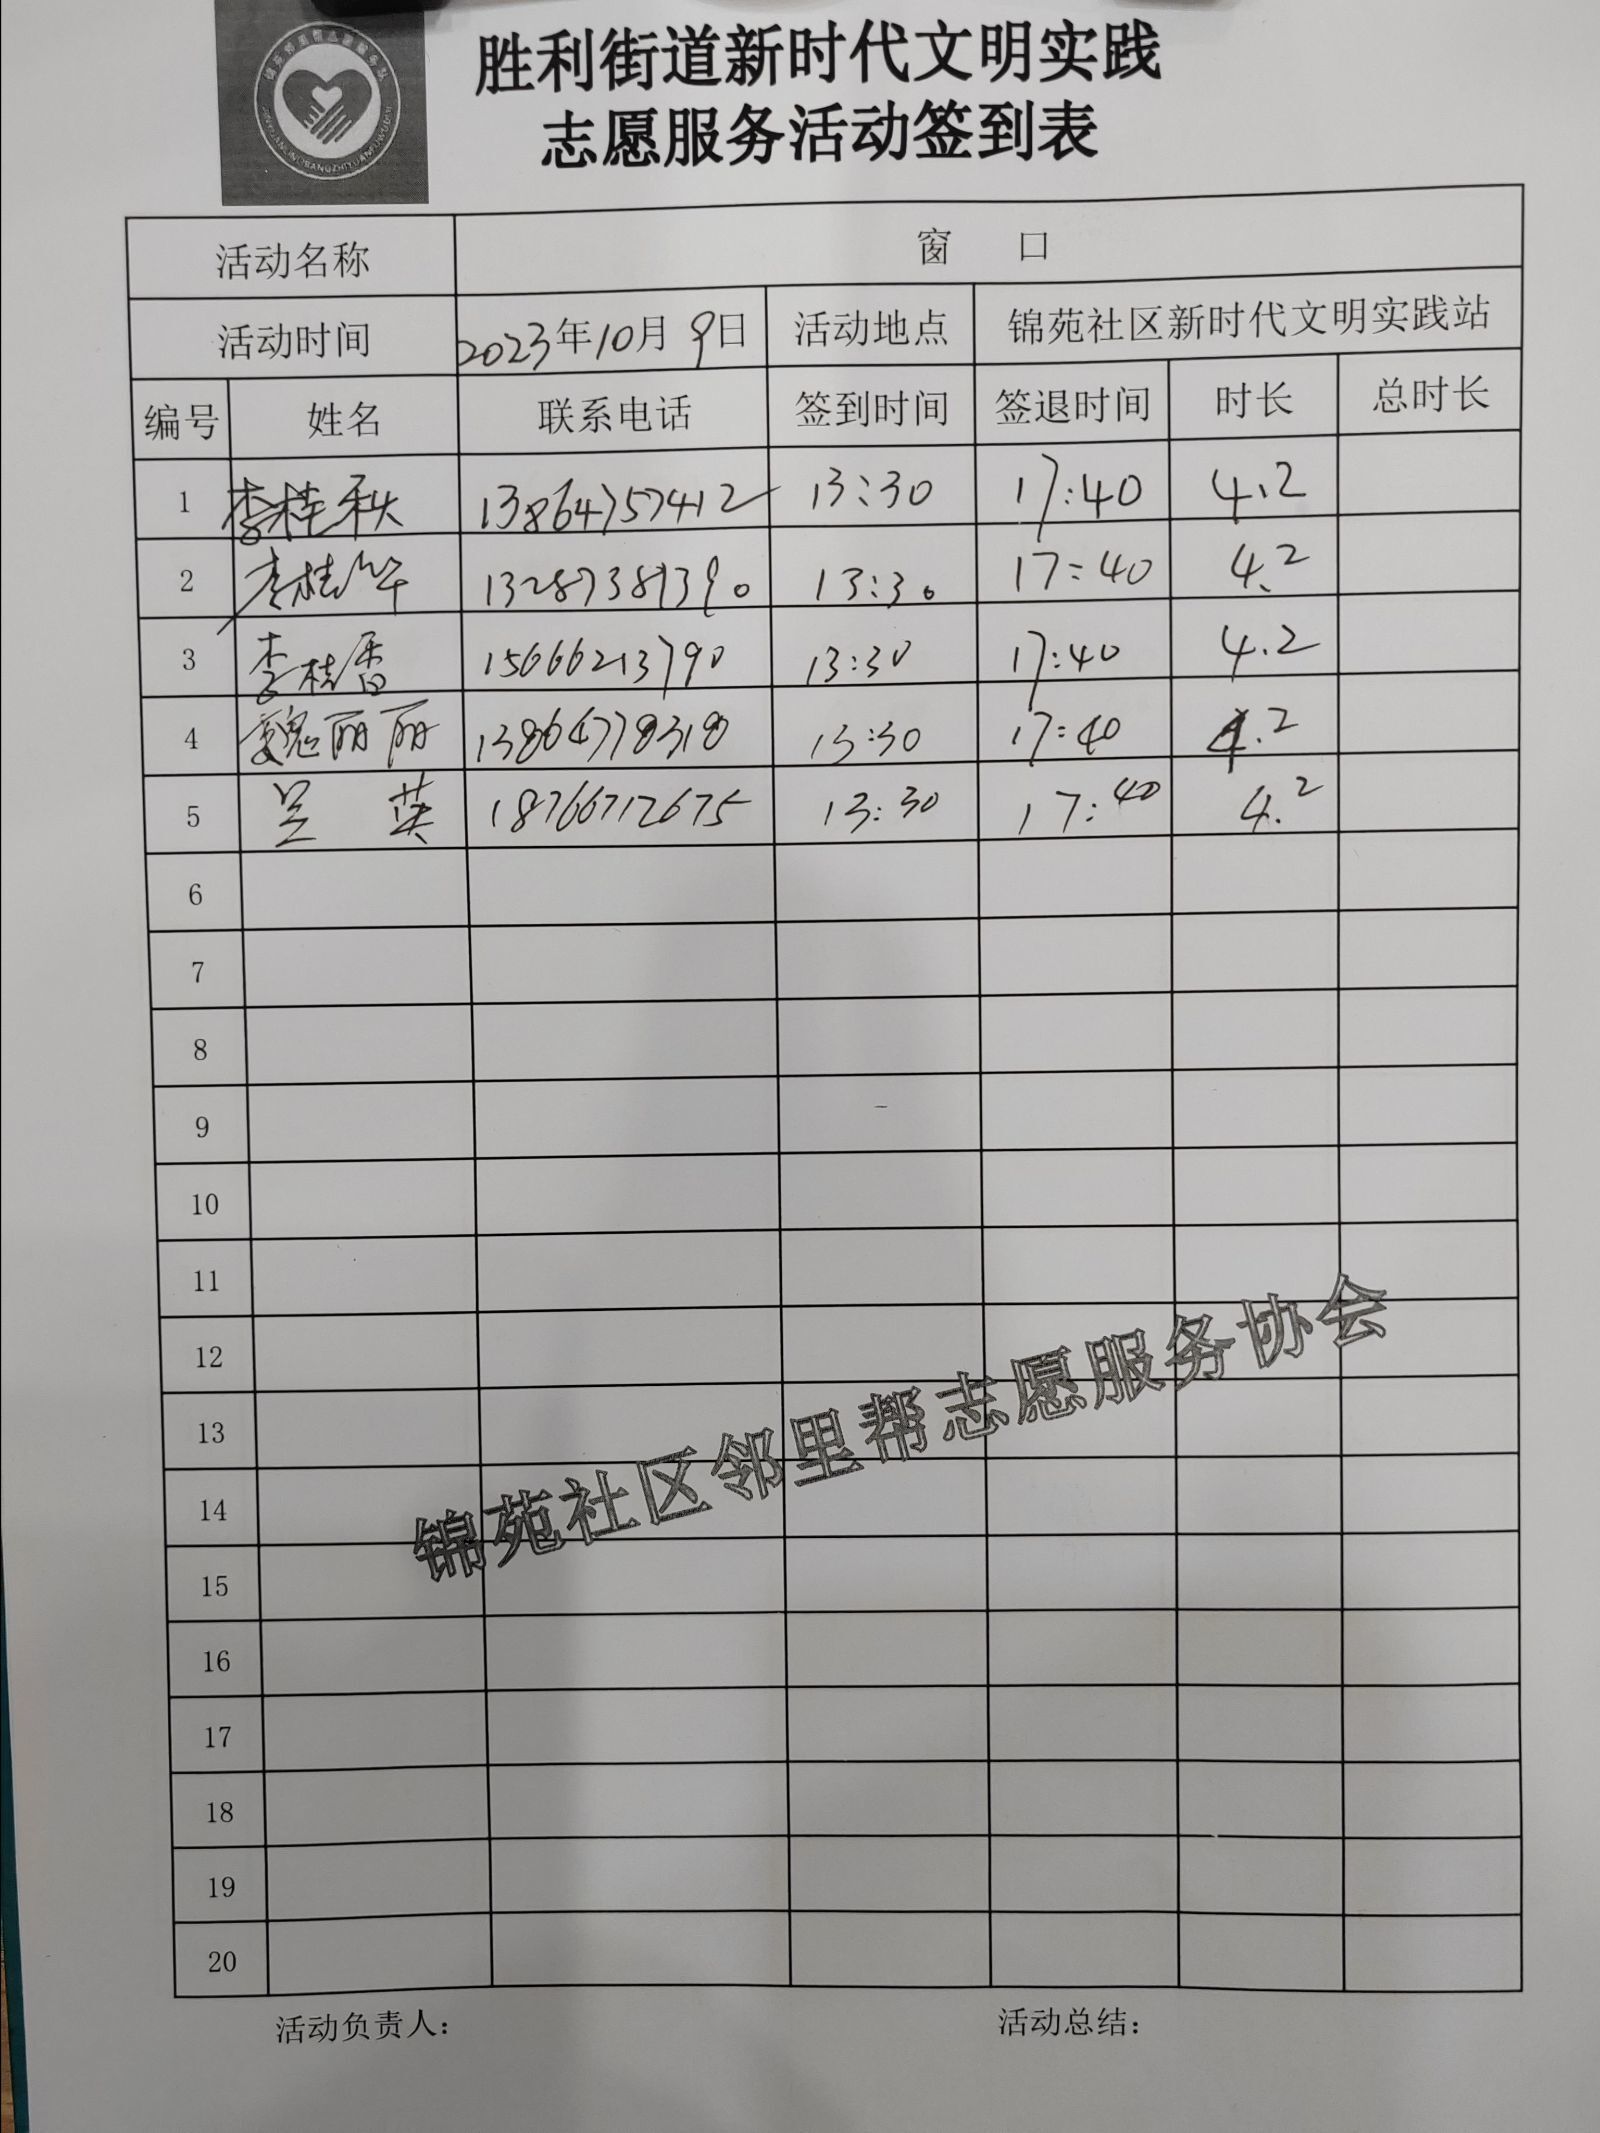 胜利街道新时代文明实践
志愿服务活动签到表
活动名称 窗 口
活动时间 2023年10月9日 活动地点 锦苑社区新时代文明实践站
编号 姓名 联系电话 签到时间 签退时间 时长 总时长
1 李桂秋 13864757412 13:30 17:40 4.2
2 李桂华 13:30 17:40 4.2
3 李桂香 15666213790 13:30 17:40 4.2
4 魏丽丽 13864778318 13:30 17:40 4.2
5 吴 英 18766712675 13:30 17:40 4.2
6
7
8
9
10
11
12
13
14
15
16
17
18
19
20
锦苑社区邻里帮志愿服务协会
活动负责人： 活动总结：